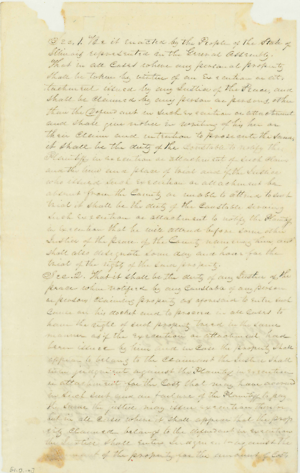 Sec. 1. Be it enacted by the People of the State of
Illinois represented in the General Assembly.
That in all Cases where any personal property
Shall be taken by virtue of an execution or at-
tachment issued by any Justice of the Peace, and
Shall be claimed by any person or persons other
than the Defendant in such execution or attachment
and shall give notice in writing of his or
their claim and intention to prosecute the same,
it shall be the duty of the Constable to notify the
Plaintiff in execution or attachment of such claim
and the time and place of trial and if the Justice
who issued such execution or attachment be
absent from the County or unable to attend to such
trial it shall be the duty of the Constable having
such execution or attachment to notify the Plaintiff
in execution that he will attend before some other
Justice of the peace of the County naming him and
Shall also designate some day and hour for the
trial of the right of the property.
Sec. 2. That it shall be the duty of any Justice of the
peace when notified by any Constable of any person
or persons claiming property as aforesaid to enter such
Cause on his docket and to proceed in all cases to
hear the right of such property tried in the same
manner as if the execution or attachment had
been issued by him and in case the property shall
appear to belong to the Claimant the Justice shall
give judgment against the Plaintiff in execution
or attachment for the Cost that may have accrued
in such suit and on failure of the Plaintiff to pay
the same the justice may issue execution
but in all Cases where it shall appear that the property
claimed belongs to the defendant in execution
the Justice shall enter judgment against the
claimant of the property for the amount of Cost